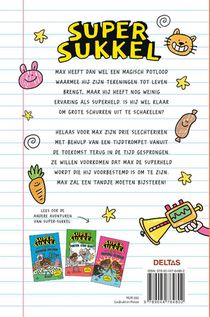 SUPER
SUKKEL
MAX HEEFT DAN WEL EEN MAGISCH POTLOOD
WAARMEE HIJ ZIJN TEKENINGEN TOT LEVEN
BRENGT, MAAR HIJ HEEFT NOG WEINIG
ERVARING ALS SUPERHELD. IS HIJ WEL KLAAR
OM GROTE SCHURKEN UIT TE SCHAKELEN?
HELAAS VOOR MAX ZIJN DRIE SLECHTERIKEN
MET BEHULP VAN EEN TIJDTROMPET VANUIT
DE TOEKOMST TERUG IN DE TIJD GESPRONGEN.
ZE WILLEN VOORKOMEN DAT MAX DE SUPERHELD
WORDT DIE HIJ VOORBESTEMD IS OM TE ZIJN.
MAX ZAL EEN TANDJE MOETEN BIJSTEKEN!
LEES OOK DE
ANDERE AVONTUREN
VAN SUPER-SUKKEL
DELTAS